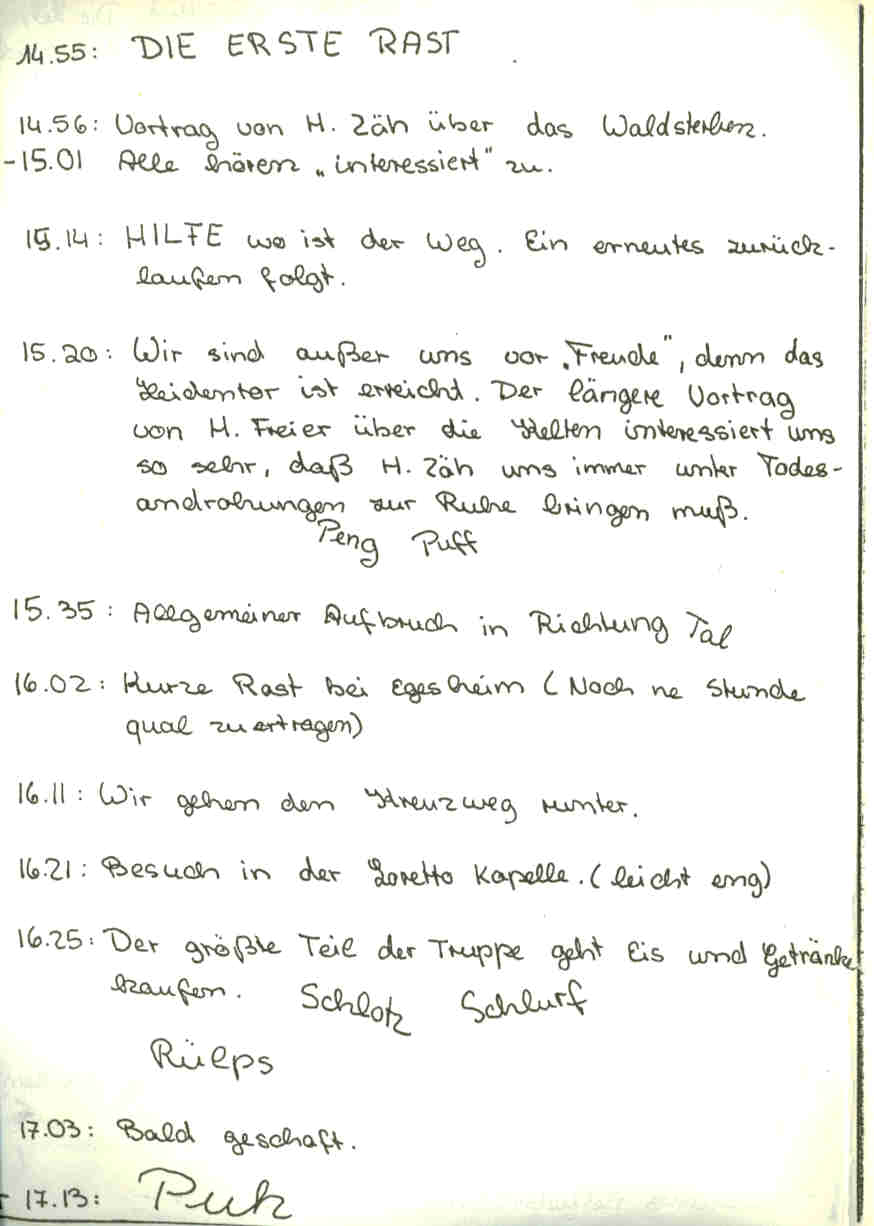 14.55: DIE ERSTE RAST
14.56: Vortrag von H. Zäh über das Waldsterben.
-15.01 Alle hören „interessiert" zu.
15.14: HILFE wo ist der Weg. Ein erneutes zurück-
laufen folgt.
15.20: Wir sind außer uns vor „Freude", denn das
Heidentor ist erreicht. Der längere Vortrag
von H. Freier über die Kelten interessiert uns
so sehr, daß H. Zäh uns immer unter Todes-
androhungen zur Ruhe bringen muß.
Peng Puff
15.35: Allgemeiner Aufbruch in Richtung Tal
16.02: Kurze Rast bei Egesheim (Noch ne Stunde
qual zu ertragen)
16.11: Wir gehen den Kreuzweg runter.
16.21: Besuch in der Loretto Kapelle. (leicht eng)
16.25: Der größte Teil der Truppe geht Eis und Getränke
kaufen. Schlotz Schlurf
Rülps
17.03: Bald geschaft.
- 17.13: Puh